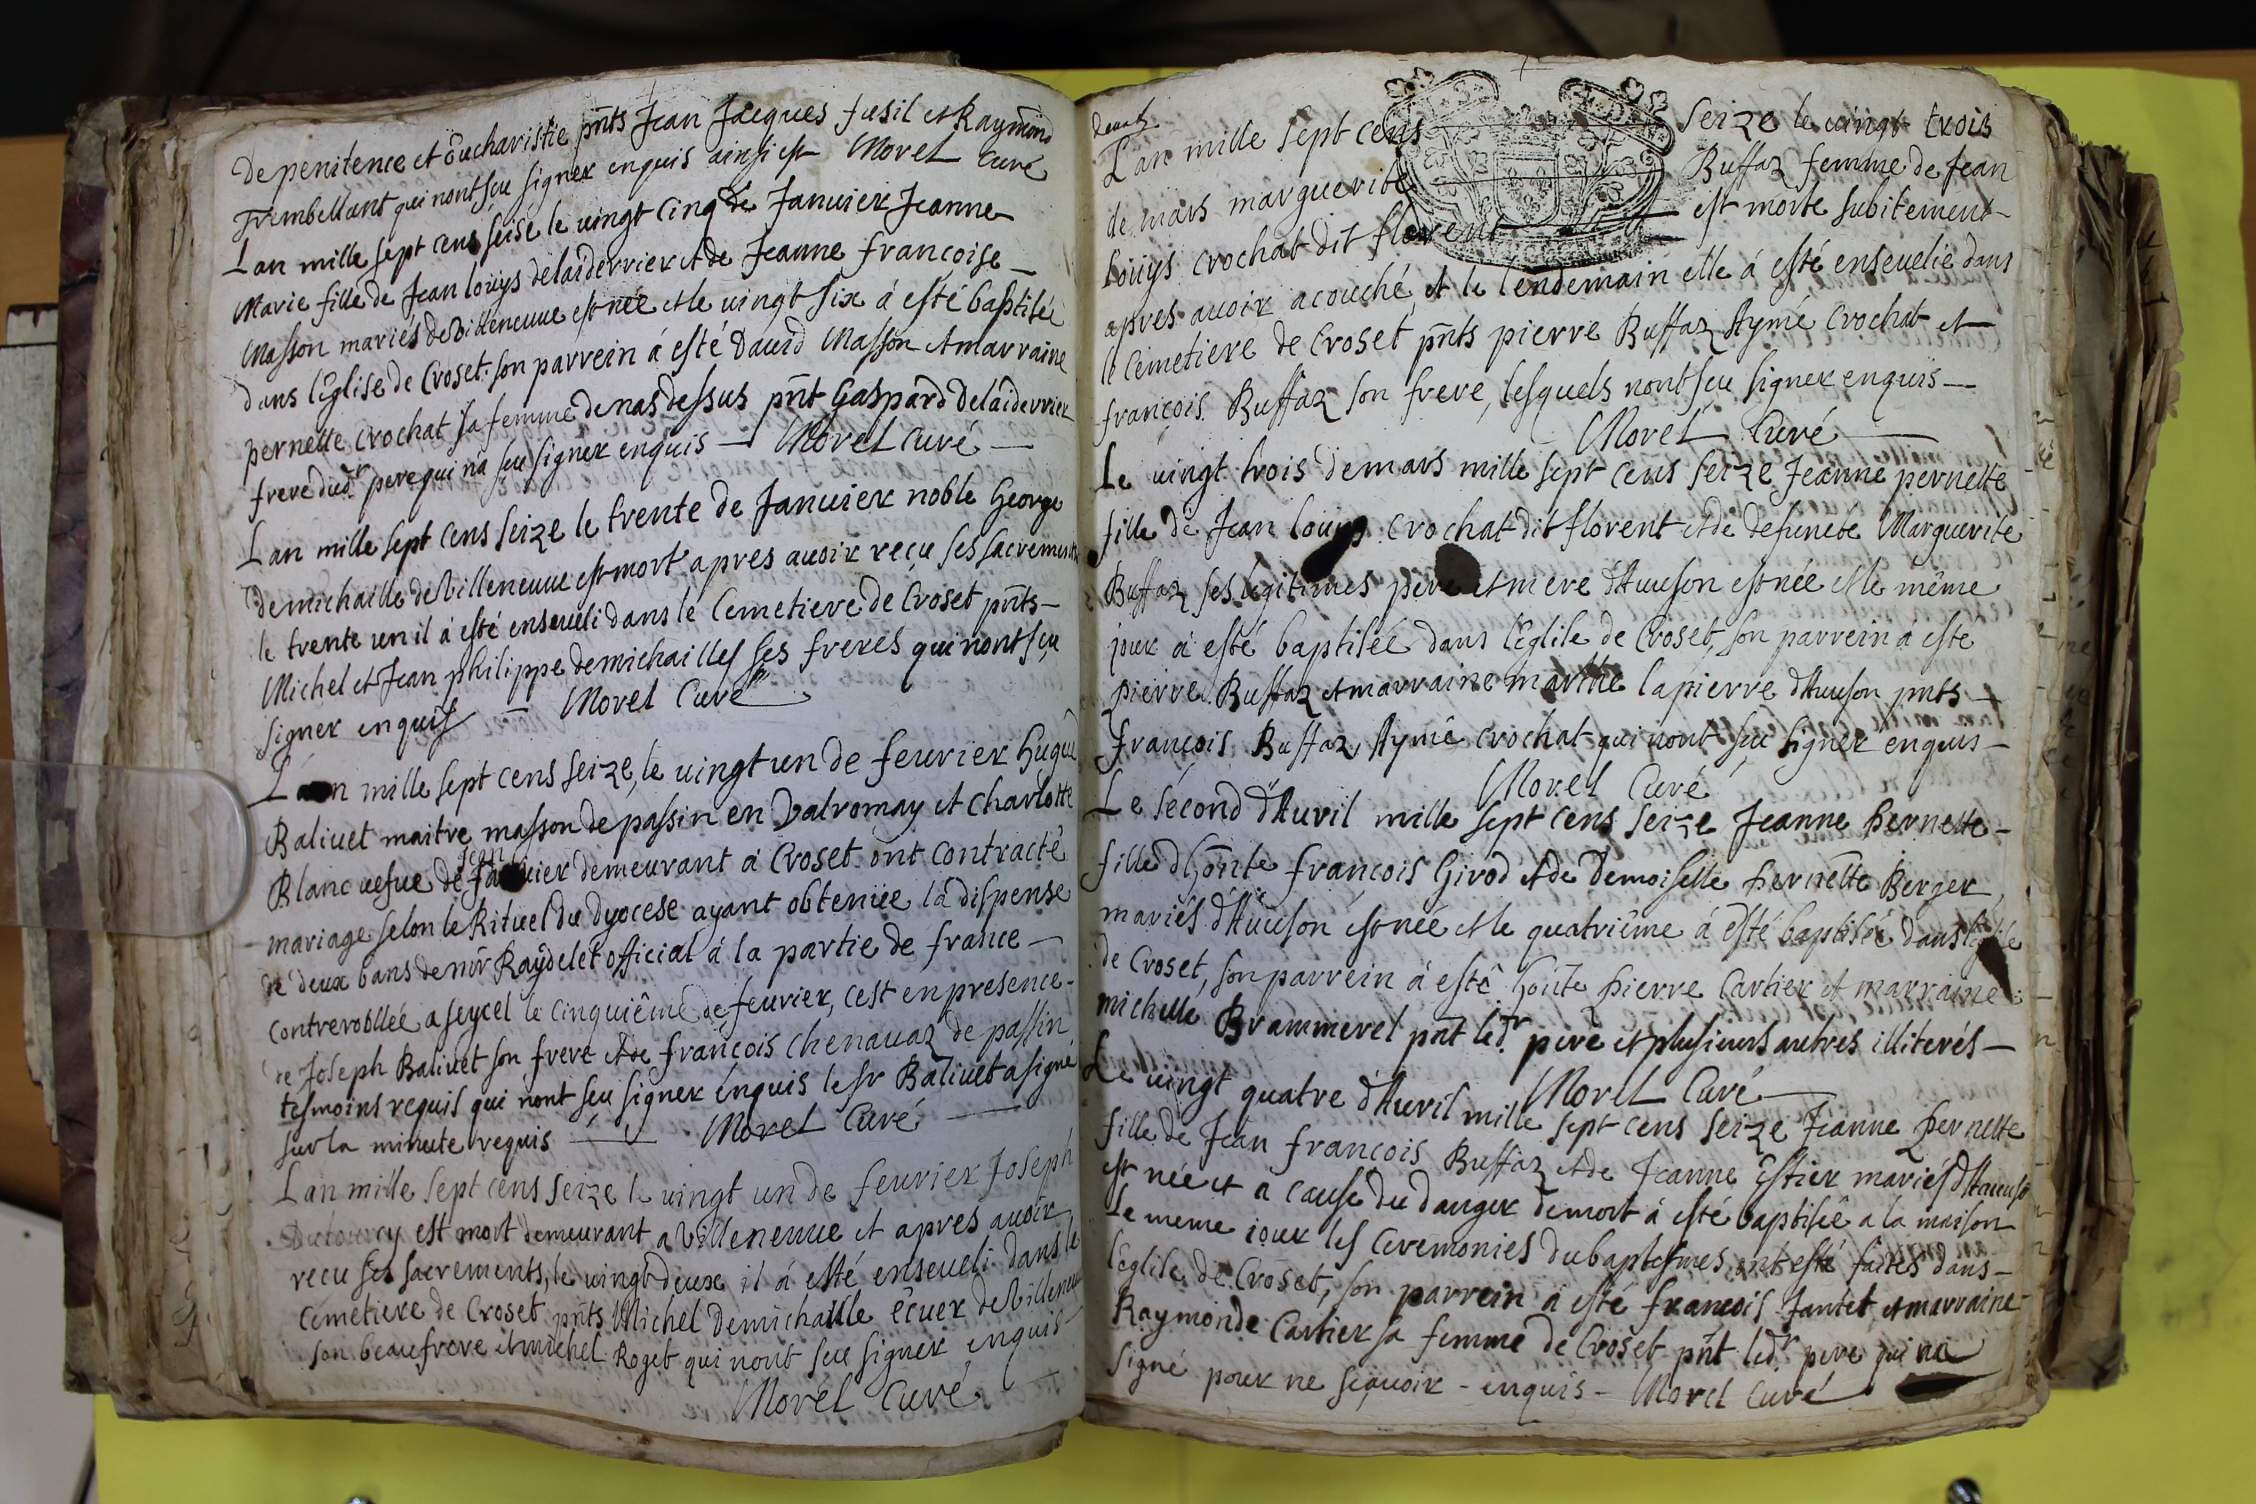 de penitence et Eucharistie pnts Jean Jacques fusil et Raymond
Trembellant qui nont sçu signer enquis ainsi est Morel Curé
Lan mille sept cens seise le vingt cinq de Januier Jeanne
Marie fille de Jean loüys delaiderrier et de Jeanne francoise
Masson mariés de Villeneuue est née et le uingt six á esté baptisée
dans l'Eglise de Croset. son parrein á esté Dauid Masson et marraine
pernette Crochat sa femme de nas dessus pnt Gaspard Delaiderrier
frere dudr pere qui na sçu signer enquis Morel curé
Lan mille sept cens seize le trente de Januier noble George
demichaille de Villeneuue est mort apres auoir reçu ses sacremens
le trente un il á esté enseueli dans le Cemetiere de Croset pnts
Michel et Jean philippe demichailles ses freres qui nont sçu
signer enquis Morel Curé
Lan mille sept cens seize, le uingt un de feurier
Baliuet maitre masson de passin en Valromay et Charlotte
Blanc uefue de Jean demeurant á Croset ont contracté
mariage selon le Rituel du Dyocese ayant obtenüe la dispense
de deux bans de mr Raydelet official á la partie de france
Controrollée a seycel le cinquiême de feurier, cest en presence
de Joseph Baliuet son frere et de françois chenauaz de passin
tesmoins requis qui nont sçu signer enquis le sr Baliuet a signé
sur la minute requis Morel Curé
Lan mille sept cens seize le uingt un de feurier Joseph
est mort demeurant a Villeneuue et apres auoir
recu ses sacrements, le uingt deux il á esté enseueli dans le
Cemetiere de Croset pnts Michel Demichaille êcuer de Villeneuue
son beaufrere et michel Roget qui nont sçu signer enquis
Morel Curé
Lan mille sept cens seize le uingt trois
de mars marguerite Buffaz femme de Jean
loüys crochat dit florent est morte subitement
apres auoir acouché, et le lendemain elle á esté enseuelie dans
le Cemetiere de Croset pnts pierre Buffaz Aymé Crochat et
françois Buffaz son frere, lesquels nont sçu signer enquis
Morel Curé
Le uingt trois de mars mille sept cens seize Jeanne pernette
fille de Jean louys crochat dit florent et de defuncte Marguerite
Buffaz ses legitimes pere et mere d'Auuson est née et le même
jour á esté baptisée dans l'Eglise de Croset, son parrein á esté
pierre Buffaz et marraine marthe lapierre d'Auuson pnts
françois Buffaz, Aymé crochat qui nont sçu signer enquis
Morel Curé
Le sécond d'Auril mille sept cens seize Jeanne pernette
fille d'honte francois Girod et de Demoiselle pernette Berger
mariés d'Auuson est née et le quatriême á esté baptisée dans l'Eglise
de Croset, son parrein á esté honte pierre Cartier et marraine
michelle Brammerel pnt ledr pere et plusieurs autres illiterés
Morel Curé
Le uingt quatre d'Auril mille sept cens seize Jeanne pernette
fille de Jean francois Buffaz et de Jeanne Estier mariés d'Auuson
est née et a cause du danger de mort á esté baptisée a la maison
le meme iour les ceremonies du baptesmes ont esté faites dans
l'eglise de Croset, son parrein á esté francois Jantet et marraine
Raymonde Cartier sa femme de Croset pnt ledr pere qui na
signé pour ne sçauoir - enquis - Morel Curé